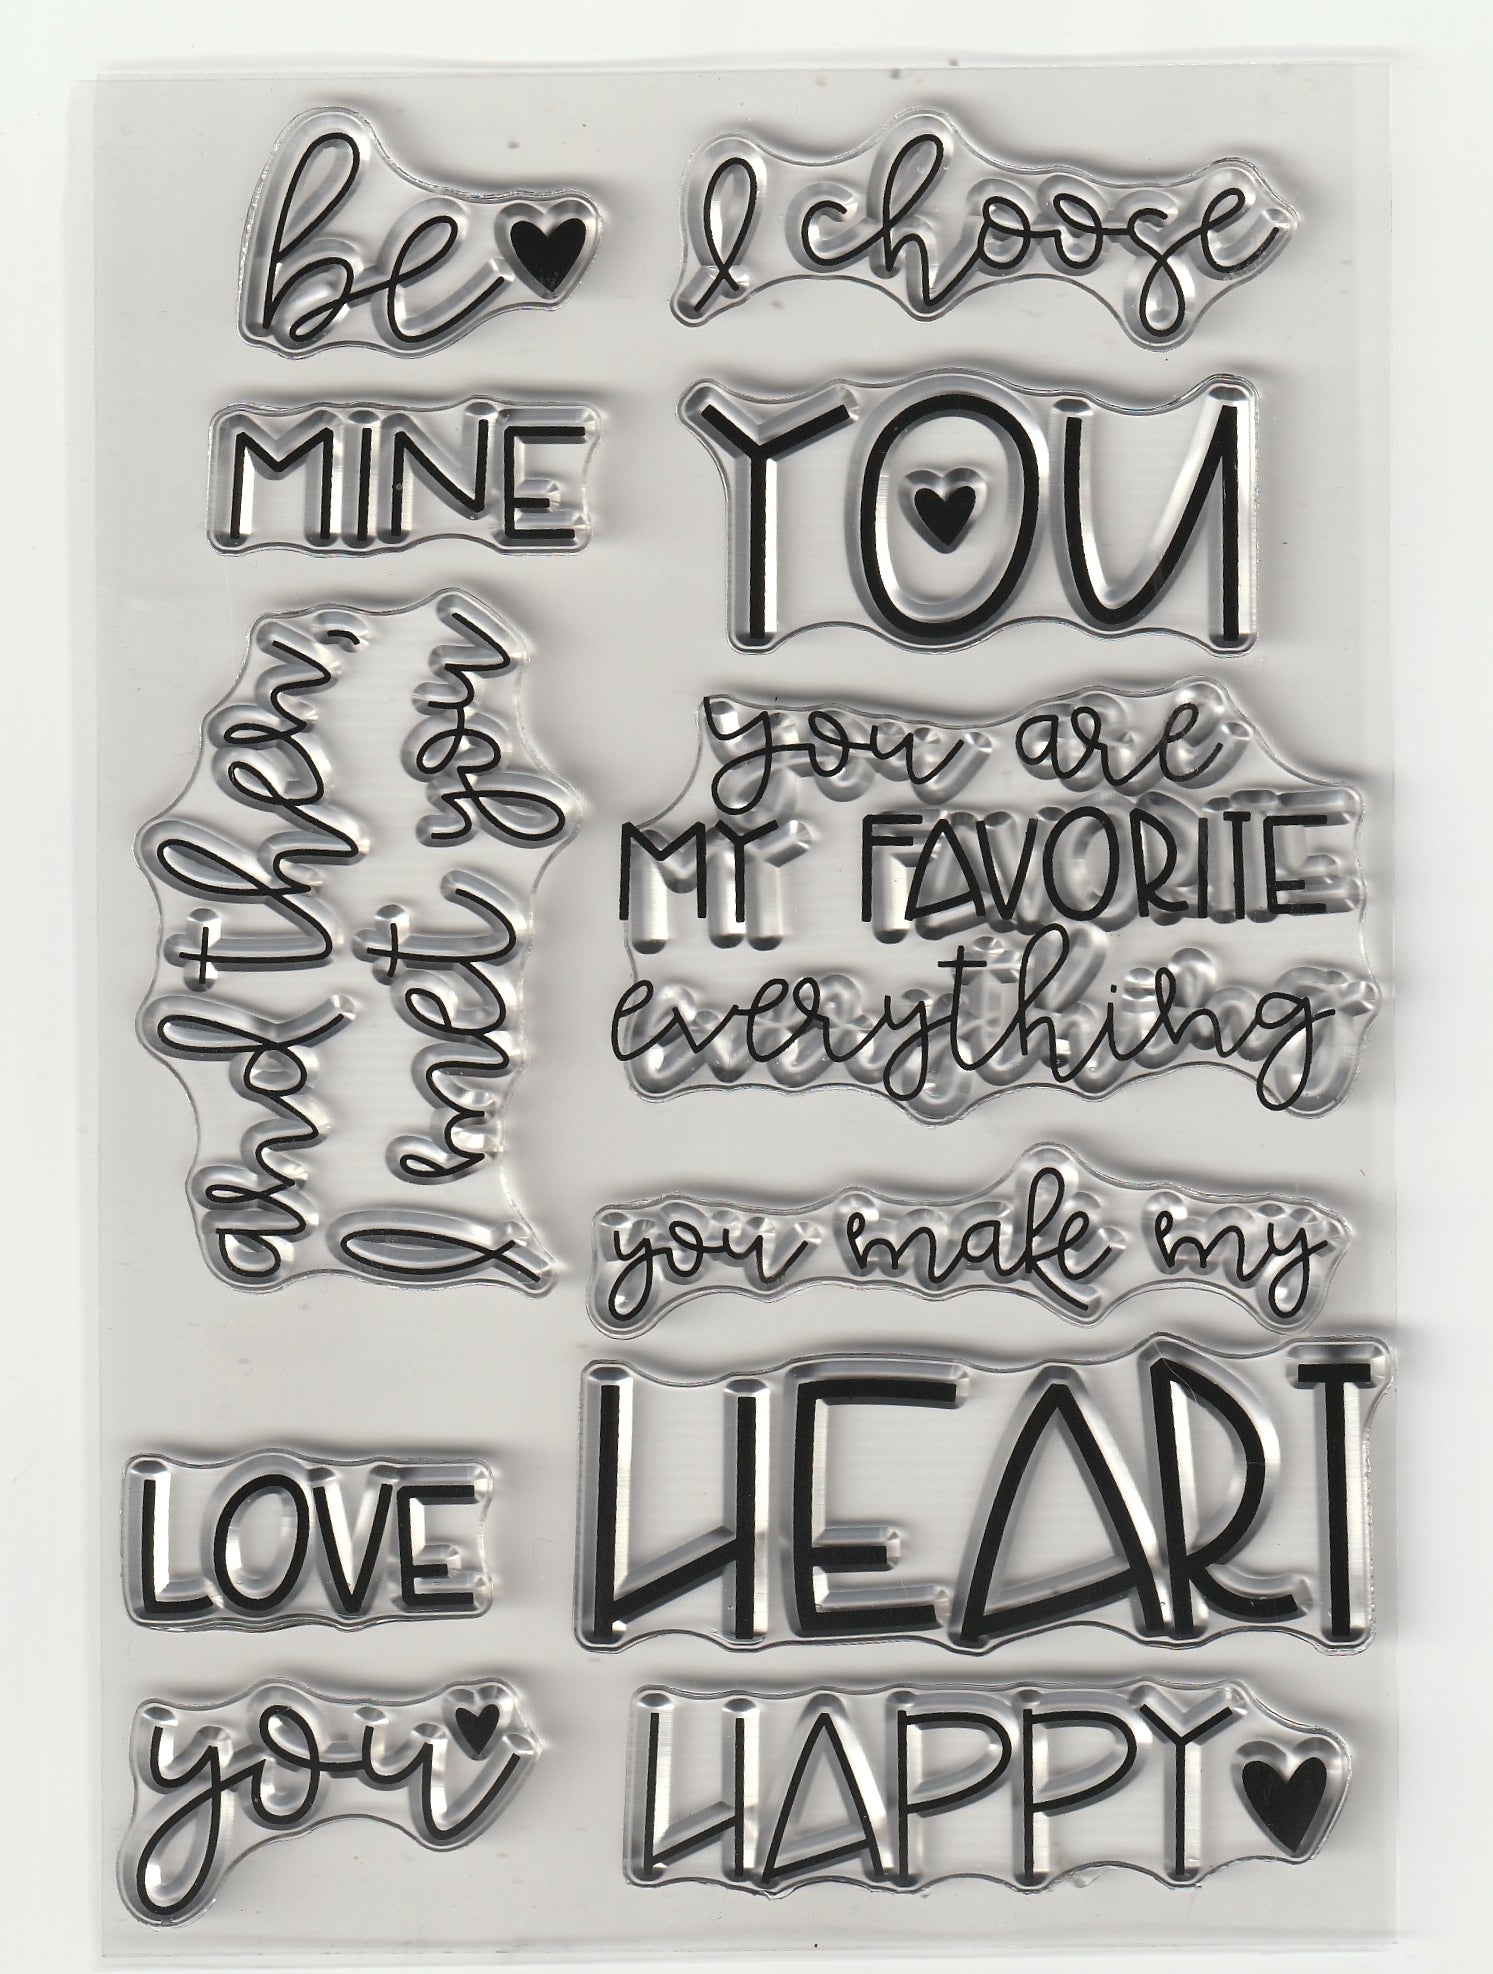 be
MINE
and then,
I met you
LOVE
you
I choose
YOU
you are
MY FAVORITE
everything
you make my
HEART
HAPPY